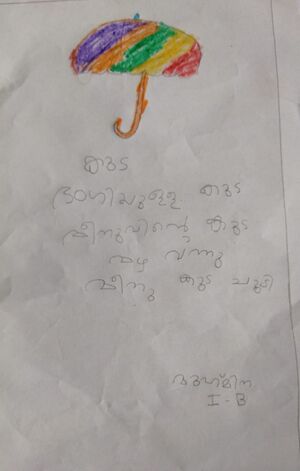 കുട
ഭംഗിയുള്ള കുട
മീനുവിന്റെ കുട
മഴ വന്നു
മീനു കുട ചൂടി
I-B